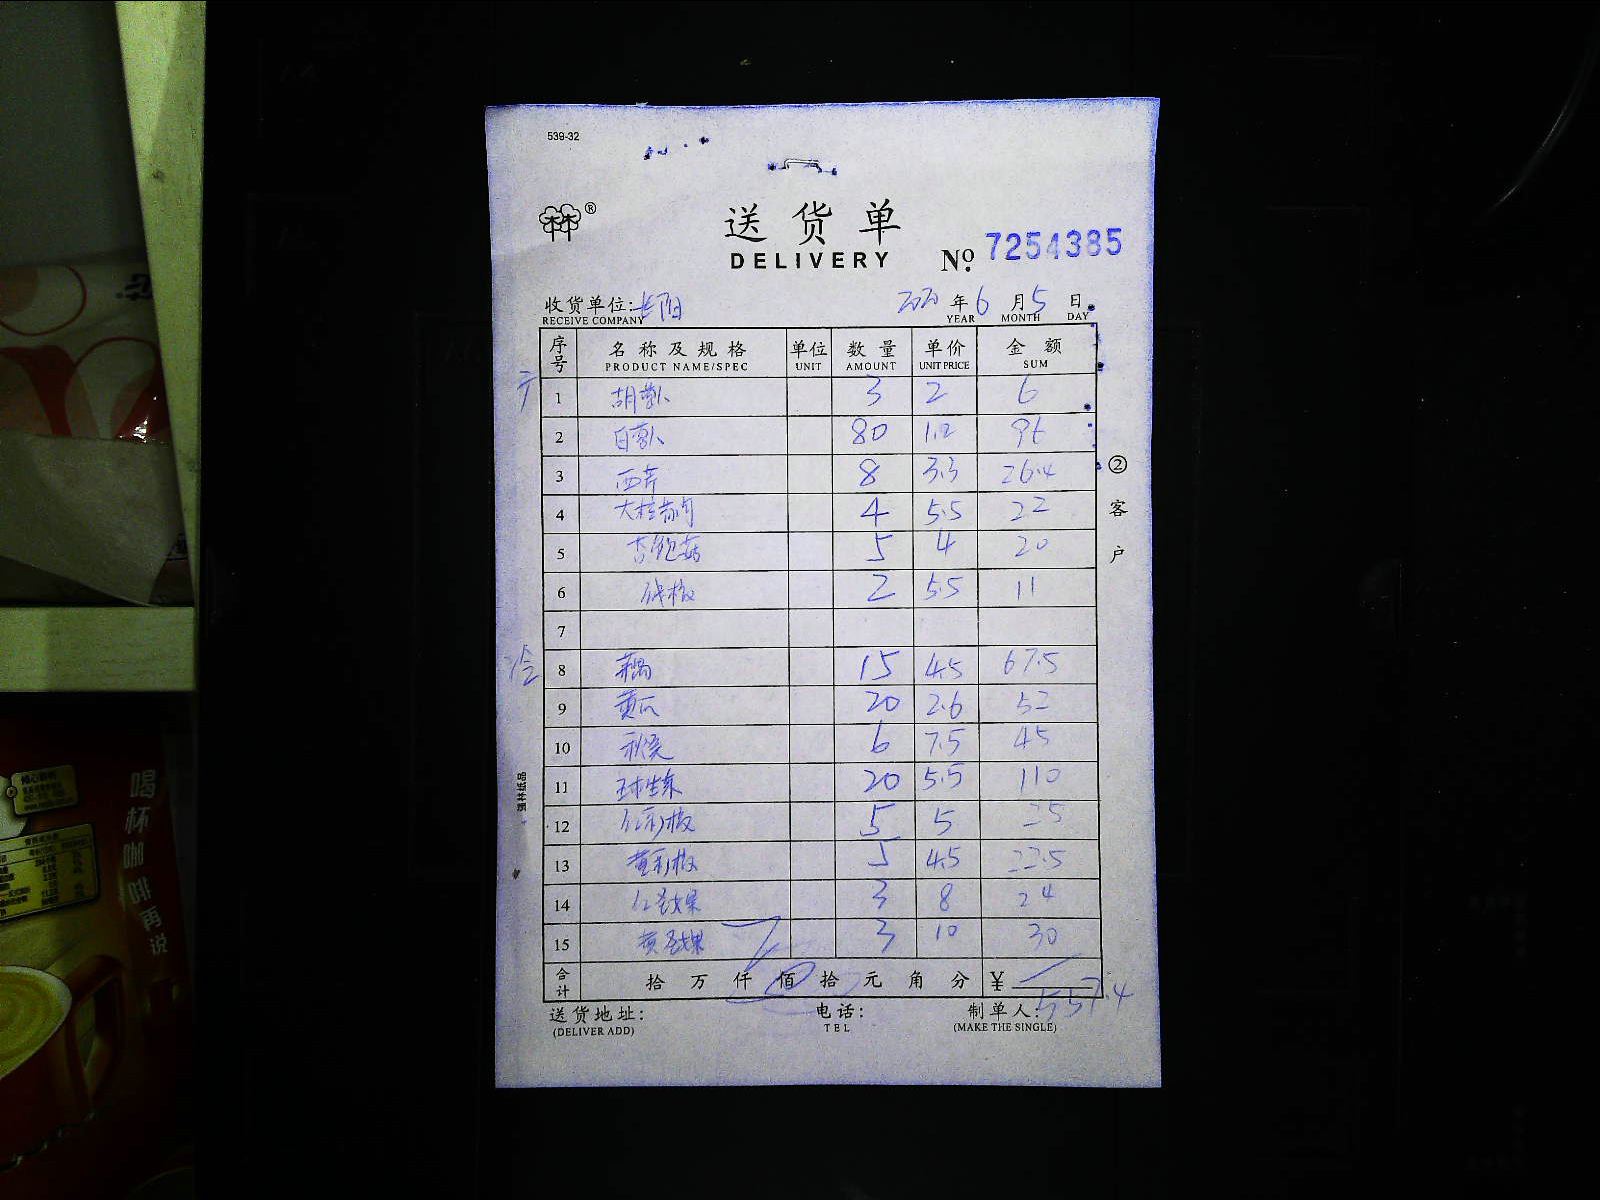 539-32
林®
送货单
DELIVERY
No. 7254385
收货单位: 长阳
RECEIVE COMPANY
2020年6月5日
YEAR MONTH DAY
序号 名称及规格 单位 数量 单价 金额
PRODUCT NAME/SPEC UNIT AMOUNT UNIT PRICE SUM
1 胡萝卜 3 2 6
2 白萝卜 80 1.2 96
3 西芹 8 3.3 26.4
4 5.5 22
5 杏鲍菇 5 4 20
6 线椒 2 5.5 11
7
冷
8 藕 15 4.5 67.5
9 黄瓜 20 2.6 52
10 秋葵 6 7.5 45
11 球生菜 20 5.5 110
12 红彩椒 5 5 25
13 黄彩椒 5 4.5 22.5
14 红圣女果 3 8 24
15 黄圣女果 3 10 30
合计 拾万仟佰拾元角分 ¥ 557.4
送货地址:
(DELIVER ADD)
电话:
TEL
制单人:
(MAKE THE SINGLE)
②客户
强林纸品
喝杯咖啡再说